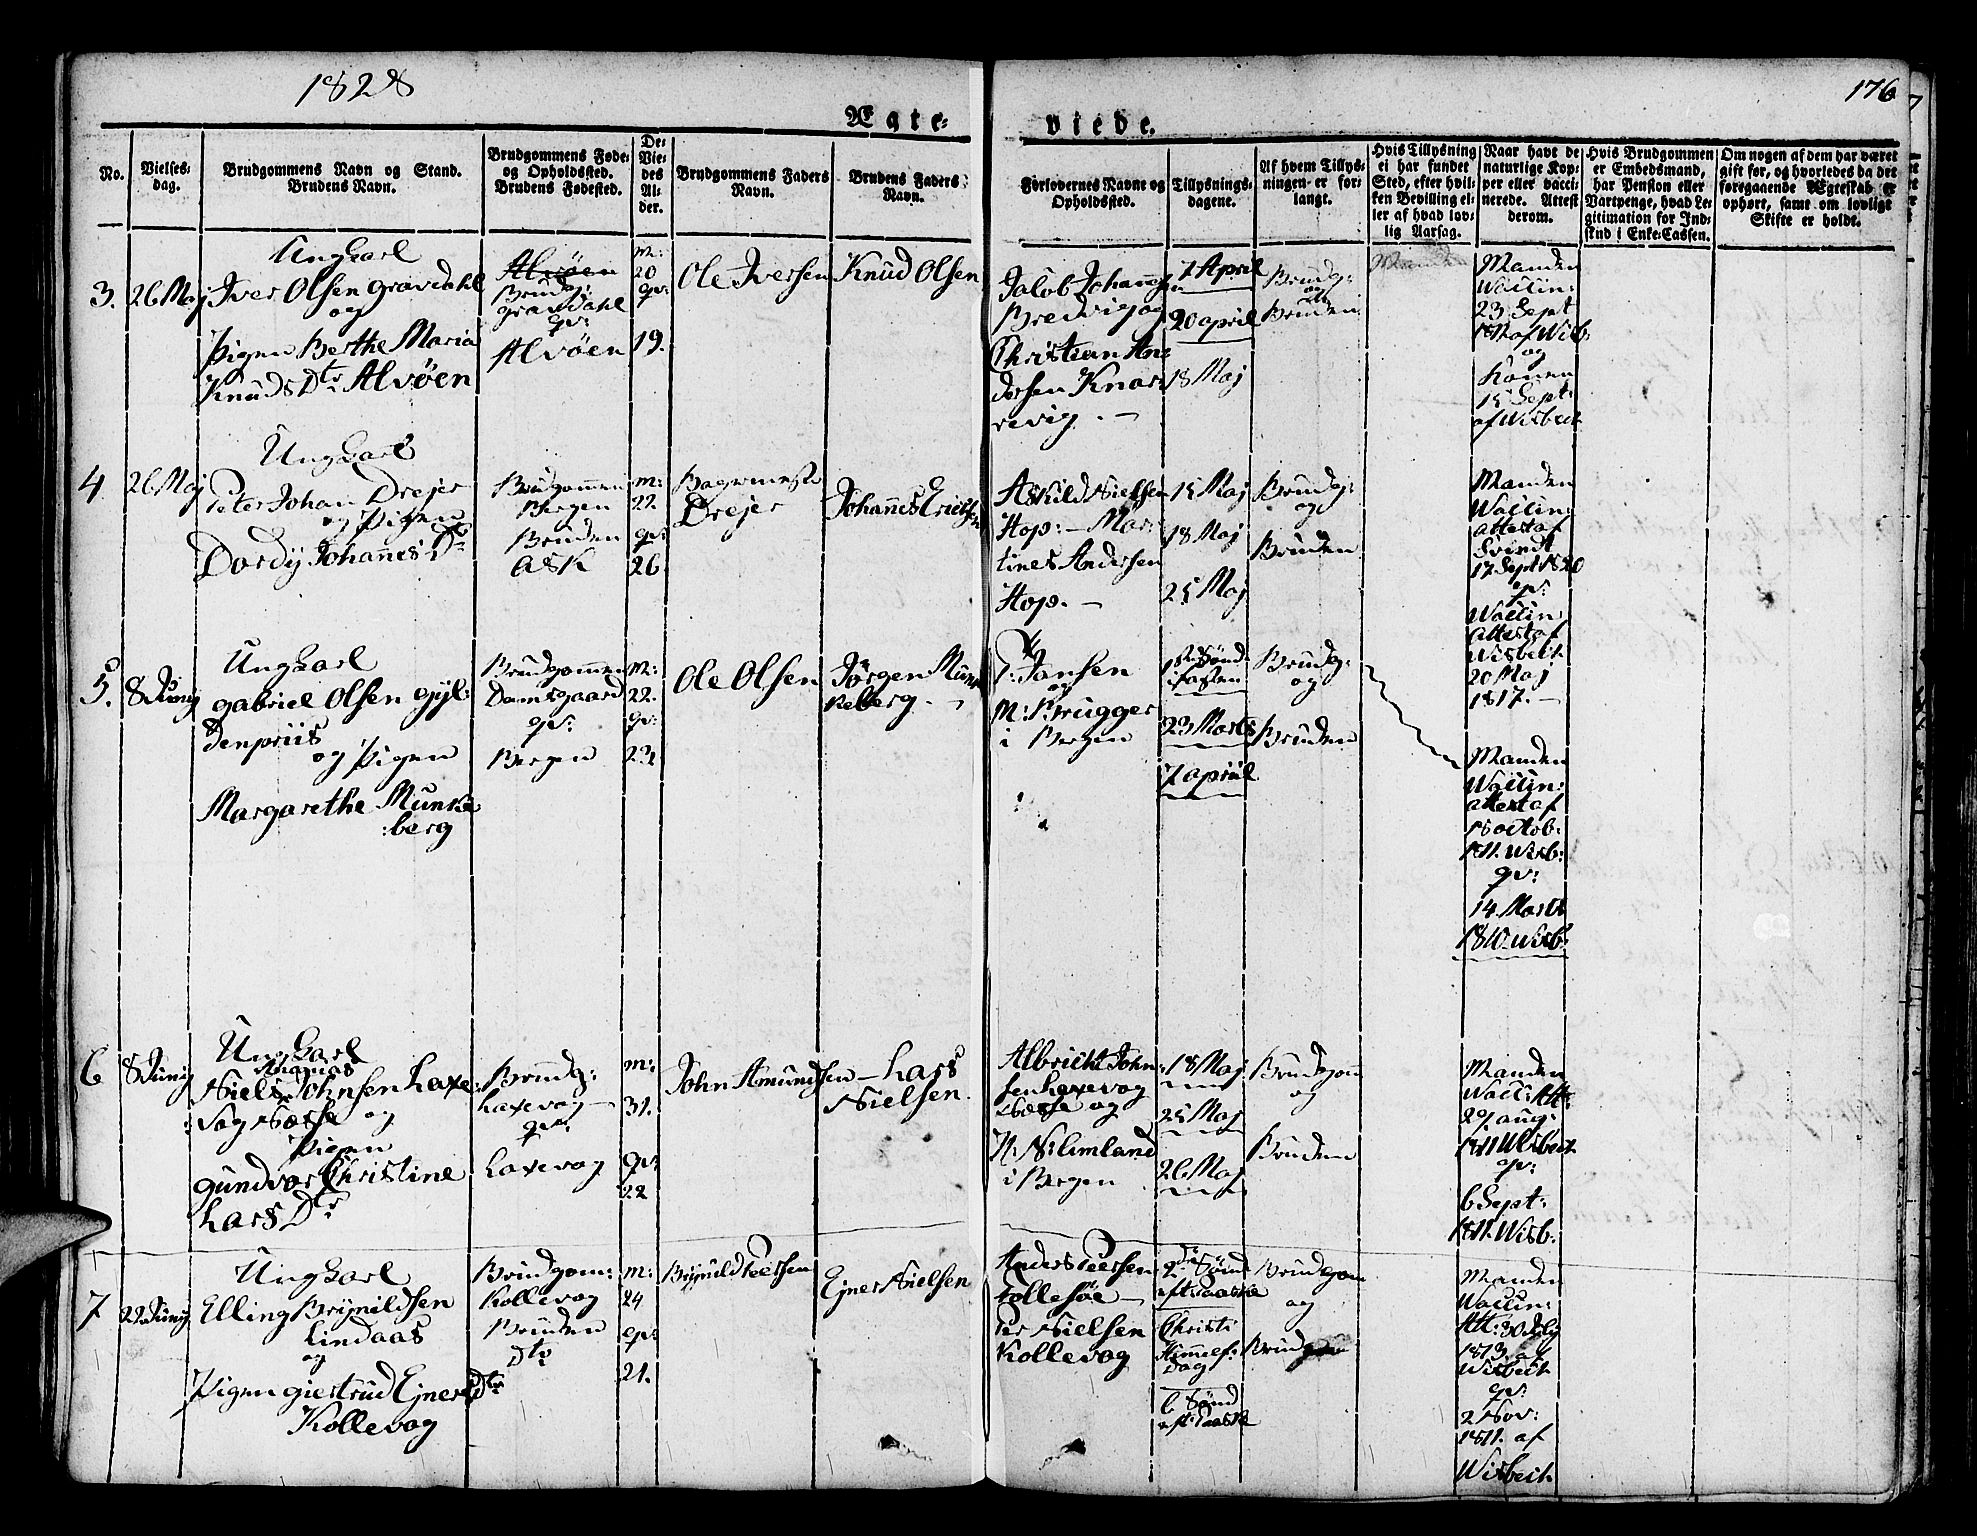 1828
176
Ægte-
viede.
No.
Vielses-
dag.
Brudgommens Navn og Stand.
Brudens Navn.
Brudgommens Føde-
og Opholdssted.
Brudens Fødested.
De
Vie-
des
Al-
der.
Brudgommens Faders
Navn.
Brudens Faders
Navn.
Forlovernes Navne og
Opholdssted.
Tillysnings-
dagene.
Af hvem Tillys-
ningen er for-
langt.
Hvis Tillysning
ei har fundet
Sted, efter hvil-
ken Bevilling el-
ler af hvad lov-
lig Aarsag.
Naar havt de
naturlige Kop-
per eller vacci-
nerede. Attest
derom.
Hvis Brudgommen
er Embedsmand,
har Pension eller
Vartpenge, hvad Le-
gitimation for Ind-
skud i Enke-Cassen.
Om nogen af dem har været
gift før, og hvorledes da det
foregaaende Ægteskab er
ophørt, samt om lovligt
Skifte er holdt.
3.
26 Maj
Ungkarl
Iver Olsen Gravdahl
og
Pigen Berthe Maria
Knuds Dtr Alvøen
Alvøen
Brudg:
Gravdahl
qv:
Alvøen
m:
20
qv:
19.
Ole Iversen
Knud Olsen
Jacob Johannes
Bredvig og
Christian An:
dersen Knar:
revig. —
7 April
20 April
18 Maj
Brudg:
og
Bruden
Manden
Manden
Vaccin:
23 Sept
1811 af Wisb.
og
Konen
15 Sept:
af Wisbech
4
26 Maj
Ungkarl
Peter Johan Drejer
og Pigen
Dordij Johannes Dtr
Brudgommen
Bergen
Bruden
Ask
m:
22.
qv:
26
Bagermester
Drejer
Johannes Ericksen
Askild Nielsen
Hop: — Mar:
tines Andersen
Hop. —
15 Maj
18 Maj
25 Maj
Brudg:
og
Bruden
Manden
Vaccin:
attest af
Svindt
17 Sept 1820
qv:
Vaccin
Attest af
Wisbech
20 Maj
1817. —
5.
8 Junij
Ungkarl
Gabriel Olsen Gyl:
denpriis
og Pigen
Margarethe Munke
:berg
Brudgommen
Damsgaard
qv:
Bergen
m:
22.
qv:
23
Ole Olsen
Jørgen Munke
berg. —
Jansen
og
M: Brugger
i Bergen
1ste Sønd
i fasten
23 Marts
7 April
Brudg:
og
Bruden
Manden
Vaccin:
attest af
18 Octob:
1811. Wisb:
qv:
14 Marts
1810. Wisb:
6
8 Junij
Ungkarl
Thomas
Niels Johnsen Laxe:
:vog Næsse og
Pigen
Gundvor Christine
Lars Dtr
Brudg:
Laxevog —
qv:
Laxevog
m:
31.
qv:
22
John Amundsen
— Lars
Nielsen.
Albricht John:
sen Laxevog
Næsse og
N: Nilimland
i Bergen
18 Maj
25 Maj
26 Maj
Brudgom
og
Bruden
Manden
Vacc: Att:
29 Aug:
1811 Wisbech
qv:
6 Sept:
1811. Wisb:
7
22 Junij
Ungkarl
Elling Brynildsen
Lindaas
og
Pigen Giertrud Ejners Dtr
Kollevog
Brudgom:
Kollevog
Bruden
Dto
m:
24
qv:
21.
Brynild Peersen
Ejner Nielsen
Anders Peersen
Tollesøe —
Per Nielsen
Kollevog
2den Sønd
eft: Paaske
Christi
Himmelf:
Dag
6 Sønd
eft: Paaske
Brudgom
og
Bruden
Manden
Vaccin:
Att: 30 July
1813 af
Wisbech
qv:
2 Nov:
1811. af
Wisbech